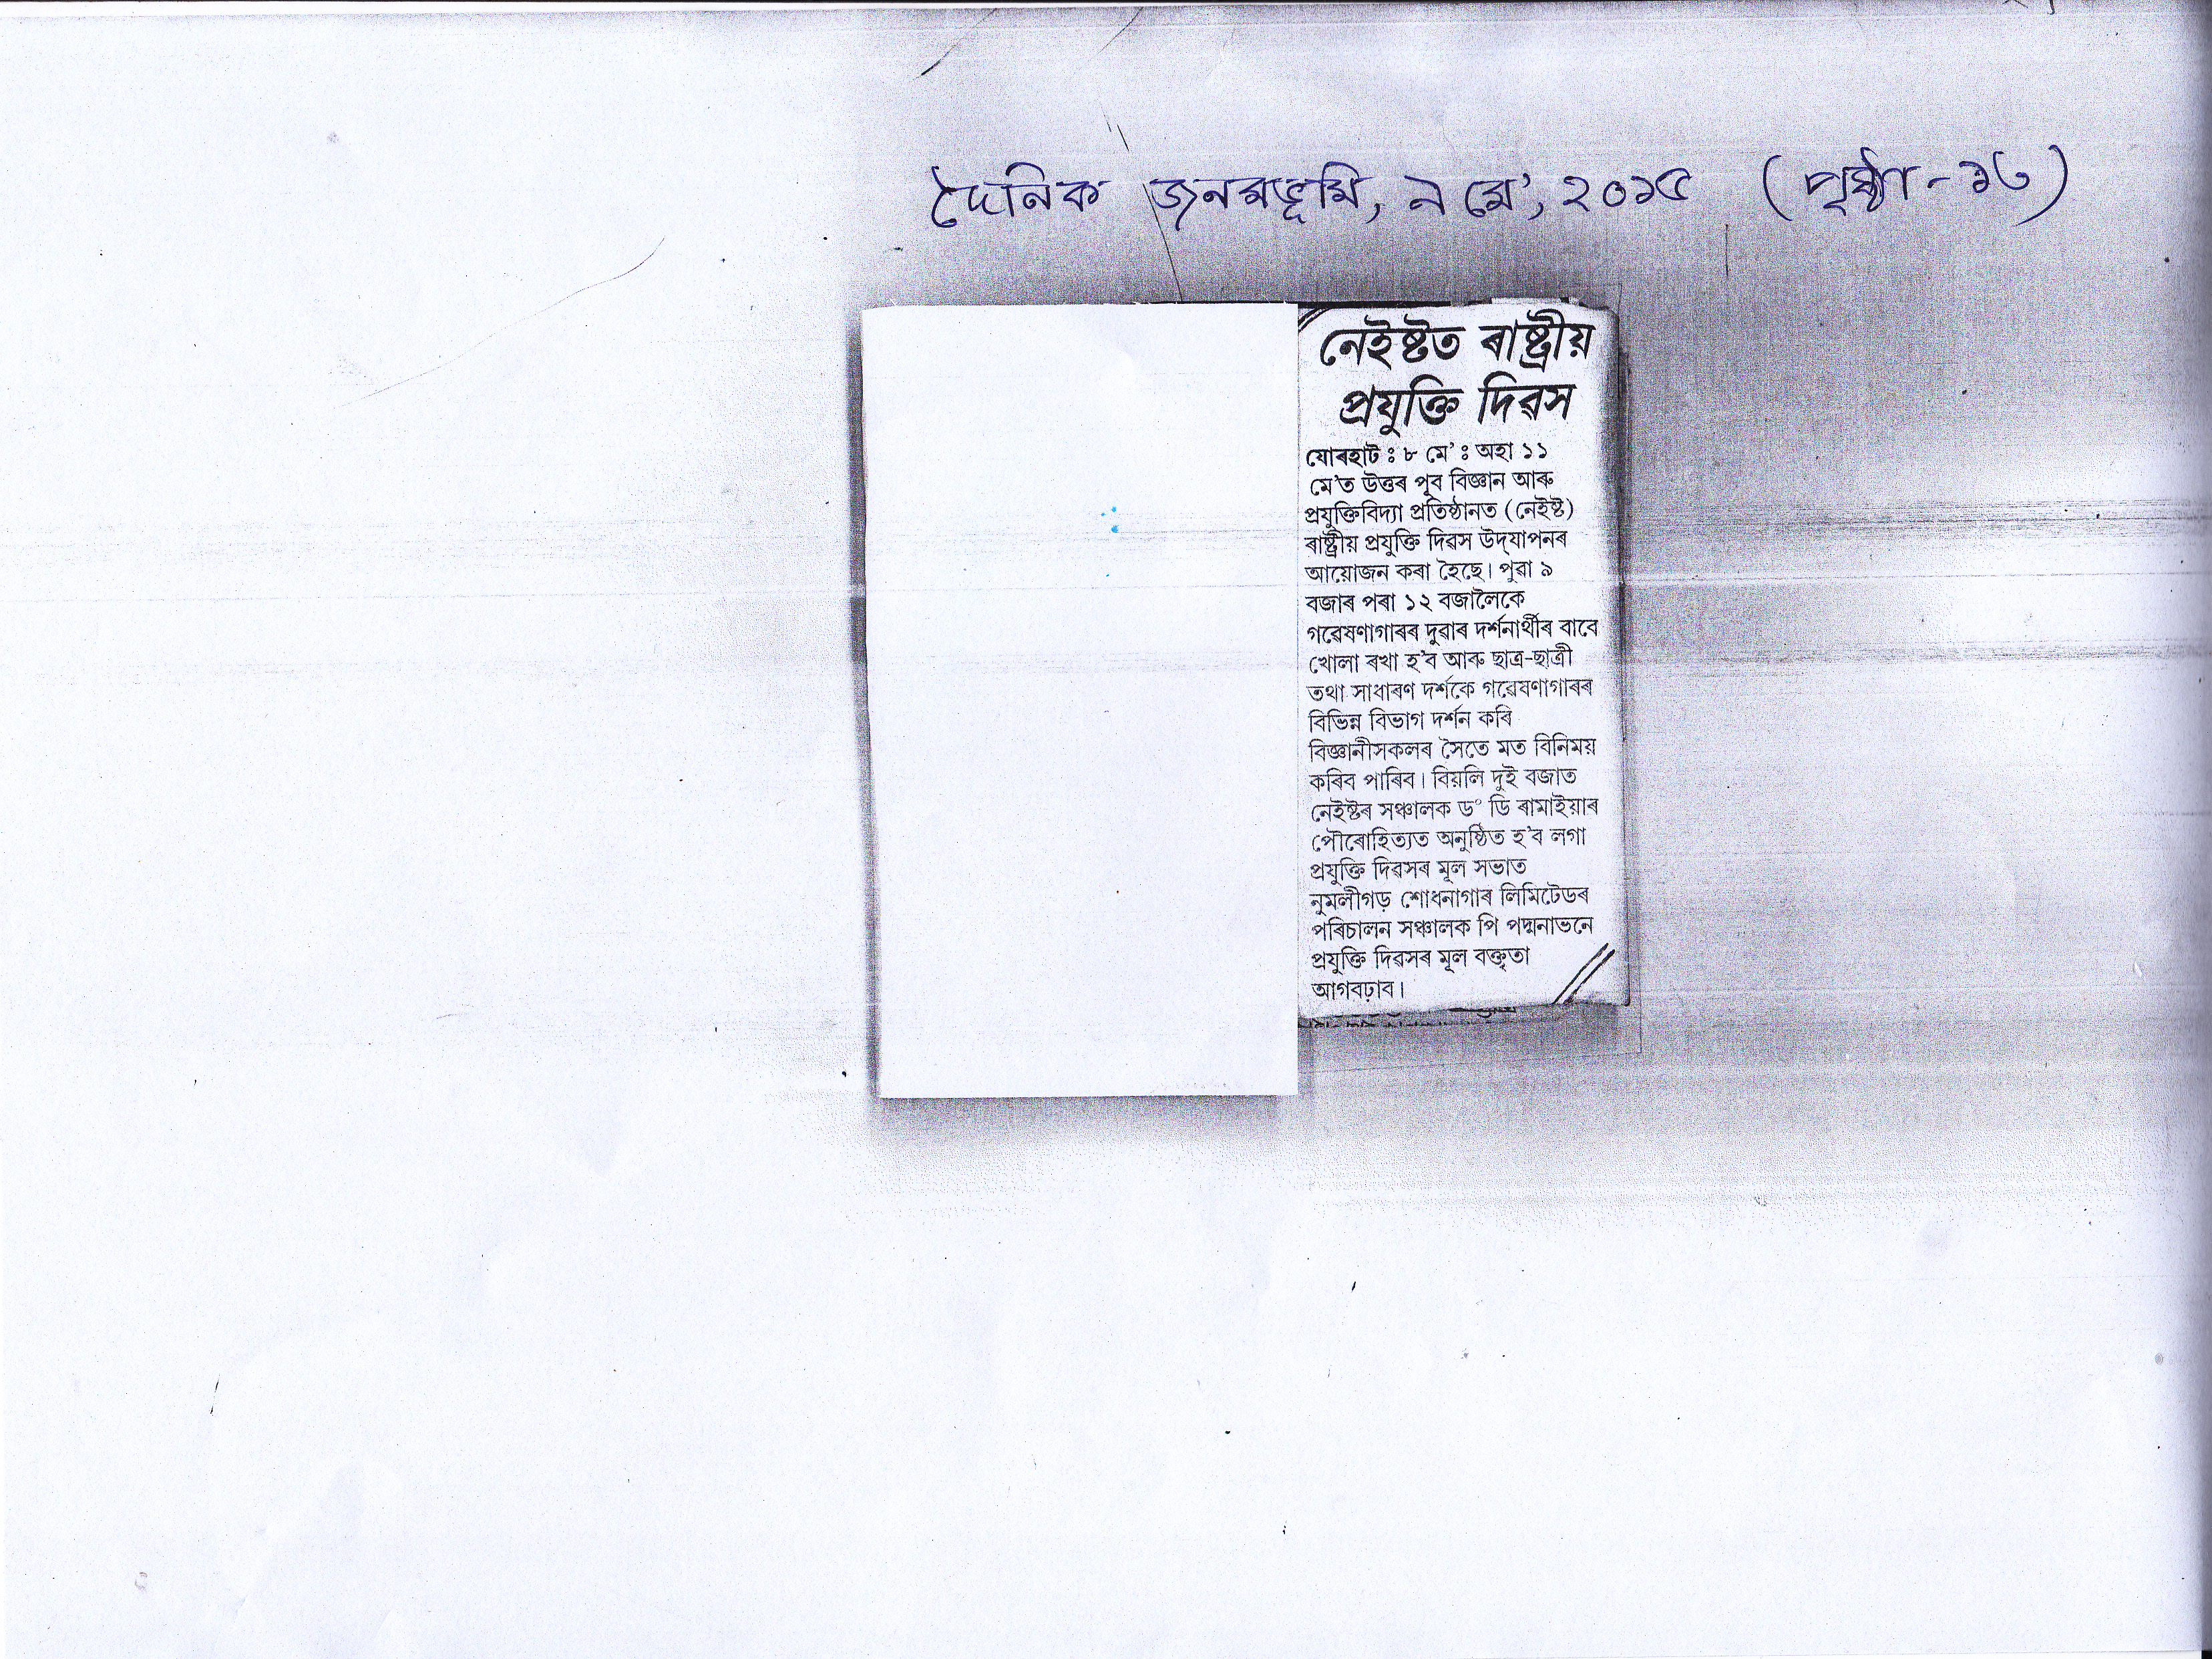 দৈনিক জনমভূমি, ৯ মে', ২০১৫ (পৃষ্ঠা-১৬)
নেইষ্টত ৰাষ্ট্ৰীয়
প্ৰযুক্তি দিৱস
যোৰহাট ঃ ৮ মে' ঃ অহা ১১
মে'ত উত্তৰ পূব বিজ্ঞান আৰু
প্ৰযুক্তিবিদ্যা প্ৰতিষ্ঠানত (নেইষ্ট)
ৰাষ্ট্ৰীয় প্ৰযুক্তি দিৱস উদ্‌যাপনৰ
আয়োজন কৰা হৈছে। পুৱা ৯
বজাৰ পৰা ১২ বজালৈকে
গৱেষণাগাৰৰ দুৱাৰ দৰ্শনাৰ্থীৰ বাবে
খোলা ৰখা হ'ব আৰু ছাত্ৰ-ছাত্ৰী
তথা সাধাৰণ দৰ্শকে গৱেষণাগাৰৰ
বিভিন্ন বিভাগ দৰ্শন কৰি
বিজ্ঞানীসকলৰ সৈতে মত বিনিময়
কৰিব পাৰিব। বিয়লি দুই বজাত
নেইষ্টৰ সঞ্চালক ড° ডি ৰামাইয়াৰ
পৌৰোহিত্যত অনুষ্ঠিত হ'ব লগা
প্ৰযুক্তি দিৱসৰ মূল সভাত
নুমলীগড় শোধনাগাৰ লিমিটেডৰ
পৰিচালন সঞ্চালক পি পদ্মনাভনে
প্ৰযুক্তি দিৱসৰ মূল বক্তৃতা
আগবঢ়াব।